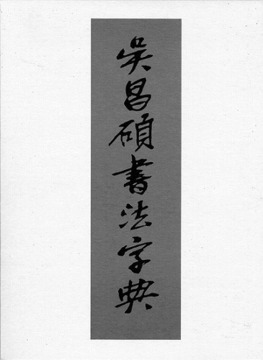 吳昌碩書法字典